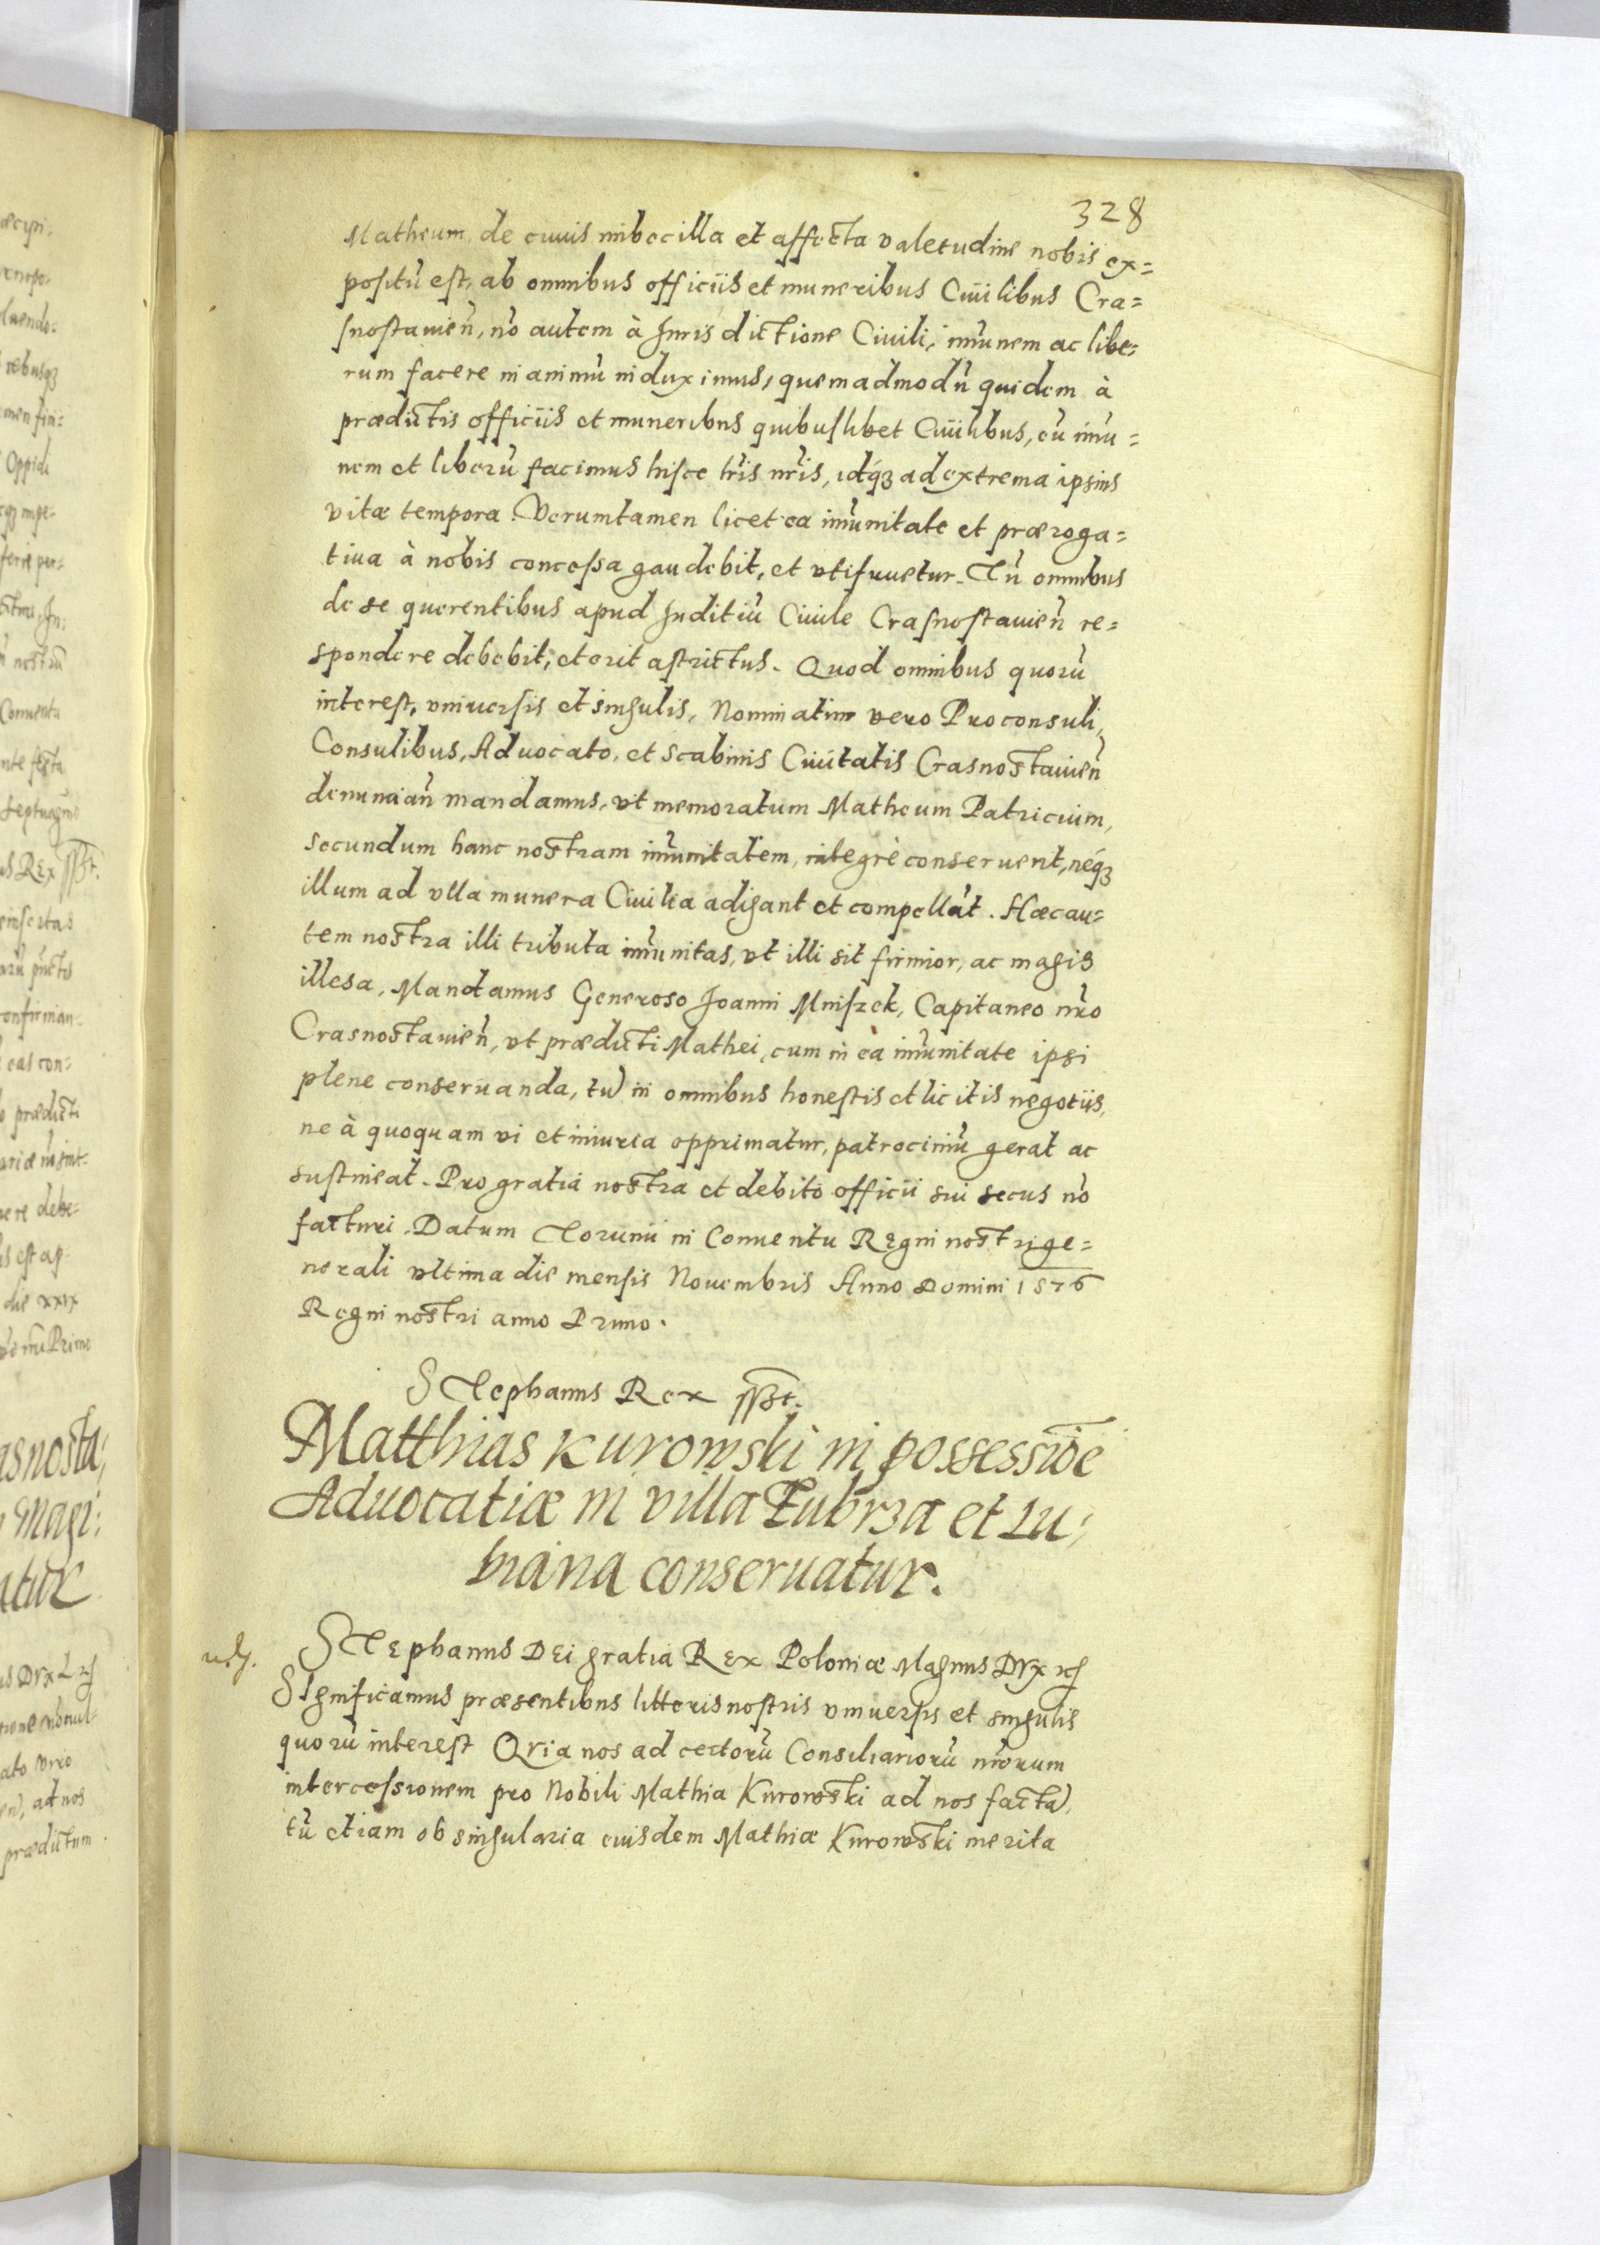 328
Matheum de cuius imbecilla et affecta valetudine nobis ex=
positū est, ab omnibus officiis et muneribus Ciuilibus Cra=
snostauien̄, nō autem à Jurisdictione Ciuili, im̄unem ac libe=
rum facere in animū induximus, quemadmodū quidem à
prædictis officiis et muneribus quibuslibet Ciuilibus, eū im̄u=
nem et liberū facimus hisce lr̄is nr̄is, idq́ꝫ ad extrema ipsius
vitæ tempora. Verumtamen licet ea im̄unitate et præroga=
tiua à nobis concessa gaudebit, et vtifruetur. Tn̄ omnibus
de se querentibus apud Juditiū Ciuile Crasnostauien̄ re=
spondere debebit, et erit astrictus. Quod omnibus quorū
interest, vniuersis et singulis, Nominatim vero Proconsuli,
Consulibus, Aduocato, et Scabinis Ciuitatis Crasnostauien̄
denuncian̄ mandamus, vt memoratum Matheum Patricium,
secundum hanc nostram im̄unitatem, integrè conseruent, neq́ꝫ
illum ad vlla munera Ciuilia adigant et compellāt. Hæc au=
tem nostra illi tributa im̄unitas, vt illi sit firmior, ac magis
illesa, Mandamus Generoso Joanni Mniszek, Capitaneo nr̄o
Crasnostauien̄, vt prædicti Mathei, cum in eà im̄unitate ipsi
plene conseruanda, tū in omnibus honestis et licitis negotiis,
ne à quoquam vi et iniuria opprimatur, patrociniū gerat ac
sustineat. Pro gratia nostra et debito officii sui secus nō
facturi. Datum Torunii in Conuentu Regni nostri ge=
nerali vltima die mensis Nouembris Anno Domini 1576
Regni nostri anno Primo.
Stephanus Rex sspt.
Matthias Kurowski in possessiōe
Aduocatiæ in villa Lubrza et Lu=
biana conseruatur.
Stephanus Dei gratia Rex Poloniæ Magnus Dvx
Significamus præsentibus litteris nostris vniuersis et singulis
quorū interest Qvia nos ad certorū Consiliariorū nr̄orum
intercessionem pro Nobili Mathia Kurowski ad nos factā,
tū etiam ob singularia eiusdem Mathiæ Kurowski merita